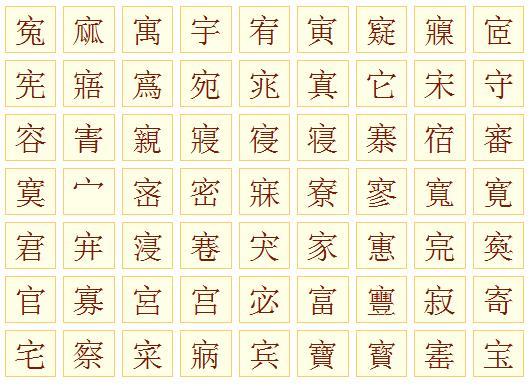 寃 寙 寓 宇 宥 寅 寲 宧
宪 寤 寪 宛 宨 寘 它 宋 守
容 寈 寴 寢 寑 寝 寨 宿 審
寞 宀 密 寐 寮 寥 寬 寛
宭 寖 宊 家 寭 完 寏
官 寡 宮 宫 宓 富 寷 寂 寄
宅 察 寀 寎 宾 寶 寳 害 宝